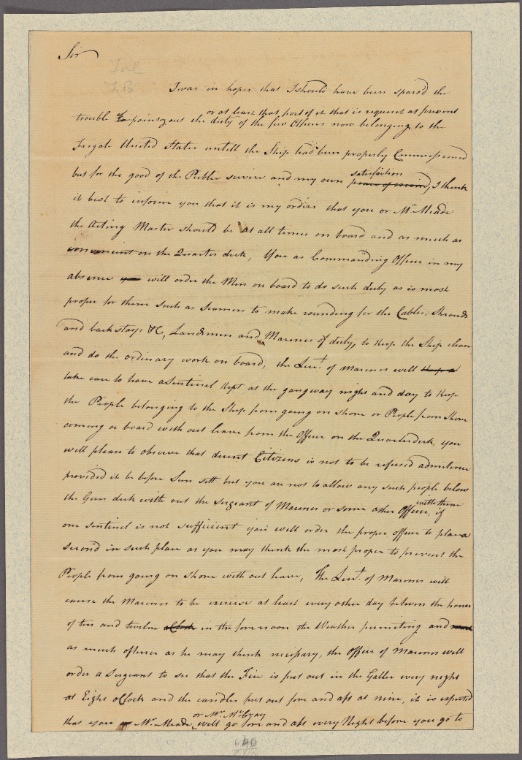 Sir
I was in hopes that I should have been spared the
or at least that part of it that is requisit at present
trouble pointg out the duty of the few Officers now belonging to the
Frigate United States untill the Ship had been properly Commissioned
satisfaction
but for the good of the Public service and my own peace of mind, I think
it best to inform you that it is my orders that you or Mr. Meade
the Acting Master should be at all times on board and as much as
convenient on the Quarter deck, You as Commanding Officer in my
absence will order the Men on board to do such duty as is most
proper for them such as Seamen to make rounding for the Cables, Shrouds
and backstays &C, Landsmen and Marines of duty to keep the Ship clean
and do the ordinary work on board, the Lieut. of marines will keep a
take care to have a Sentinel kept at the gangway night and day to keep
the People belonging to the Ship from going on shore or People from Shore
coming on board with out leave from the Officer on the Quarterdeck you
will please to observe that decent Citizens is not to be refused admittance
provided it be before Sun sett but you are not to allow any such people below
with them
the Gun deck with out the Sergeant of Marines or some other Officer, if
one Sentinel is not sufficient you will order the proper officer to place a
second in such place as you may think the most proper to prevent the
People from going on shore with out leave, The Lieut. of Marines will
cause the Marines to be exercise at least every other day between the hours
of ten and twelve oClock in the forenoon the Weather permitting and
as much oftener as he may think necessary, the Officer of Marines will
order a Sergeant to see that the Fire is put out in the Galley every night
at Eight oClock and the candles put out fore and aft at nine, it is expected
or Mr. McCray
that you or Mr. Meade, will go fore and aft every Night before you go to